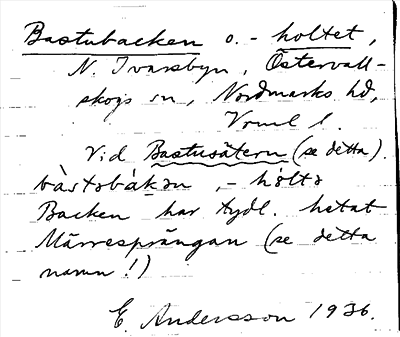 Bastubacken o. - holtet,
N. Ivarsbyn, Östervall-
skogs sn, Nordmarks hd,
Vrml l.
Vid Bastusätern (se detta).
bàstobákən, - hòltə
Backen har tydl. hetat
Märresprängan (se detta
namn!)
E. Andersson 1936.